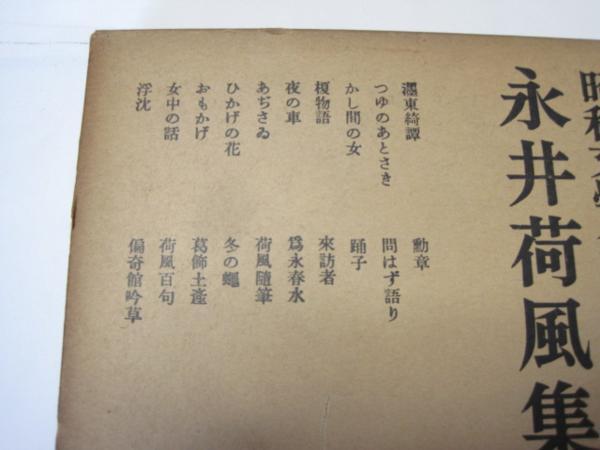 昭和文學
永井荷風集
濹東綺譚
つゆのあとさき
かし間の女
榎物語
夜の車
あぢさゐ
ひかげの花
おもかげ
女中の話
浮沈
勲章
問はず語り
踊子
來訪者
爲永春水
荷風隨筆
冬の蠅
葛飾土產
荷風百句
偏奇館吟草